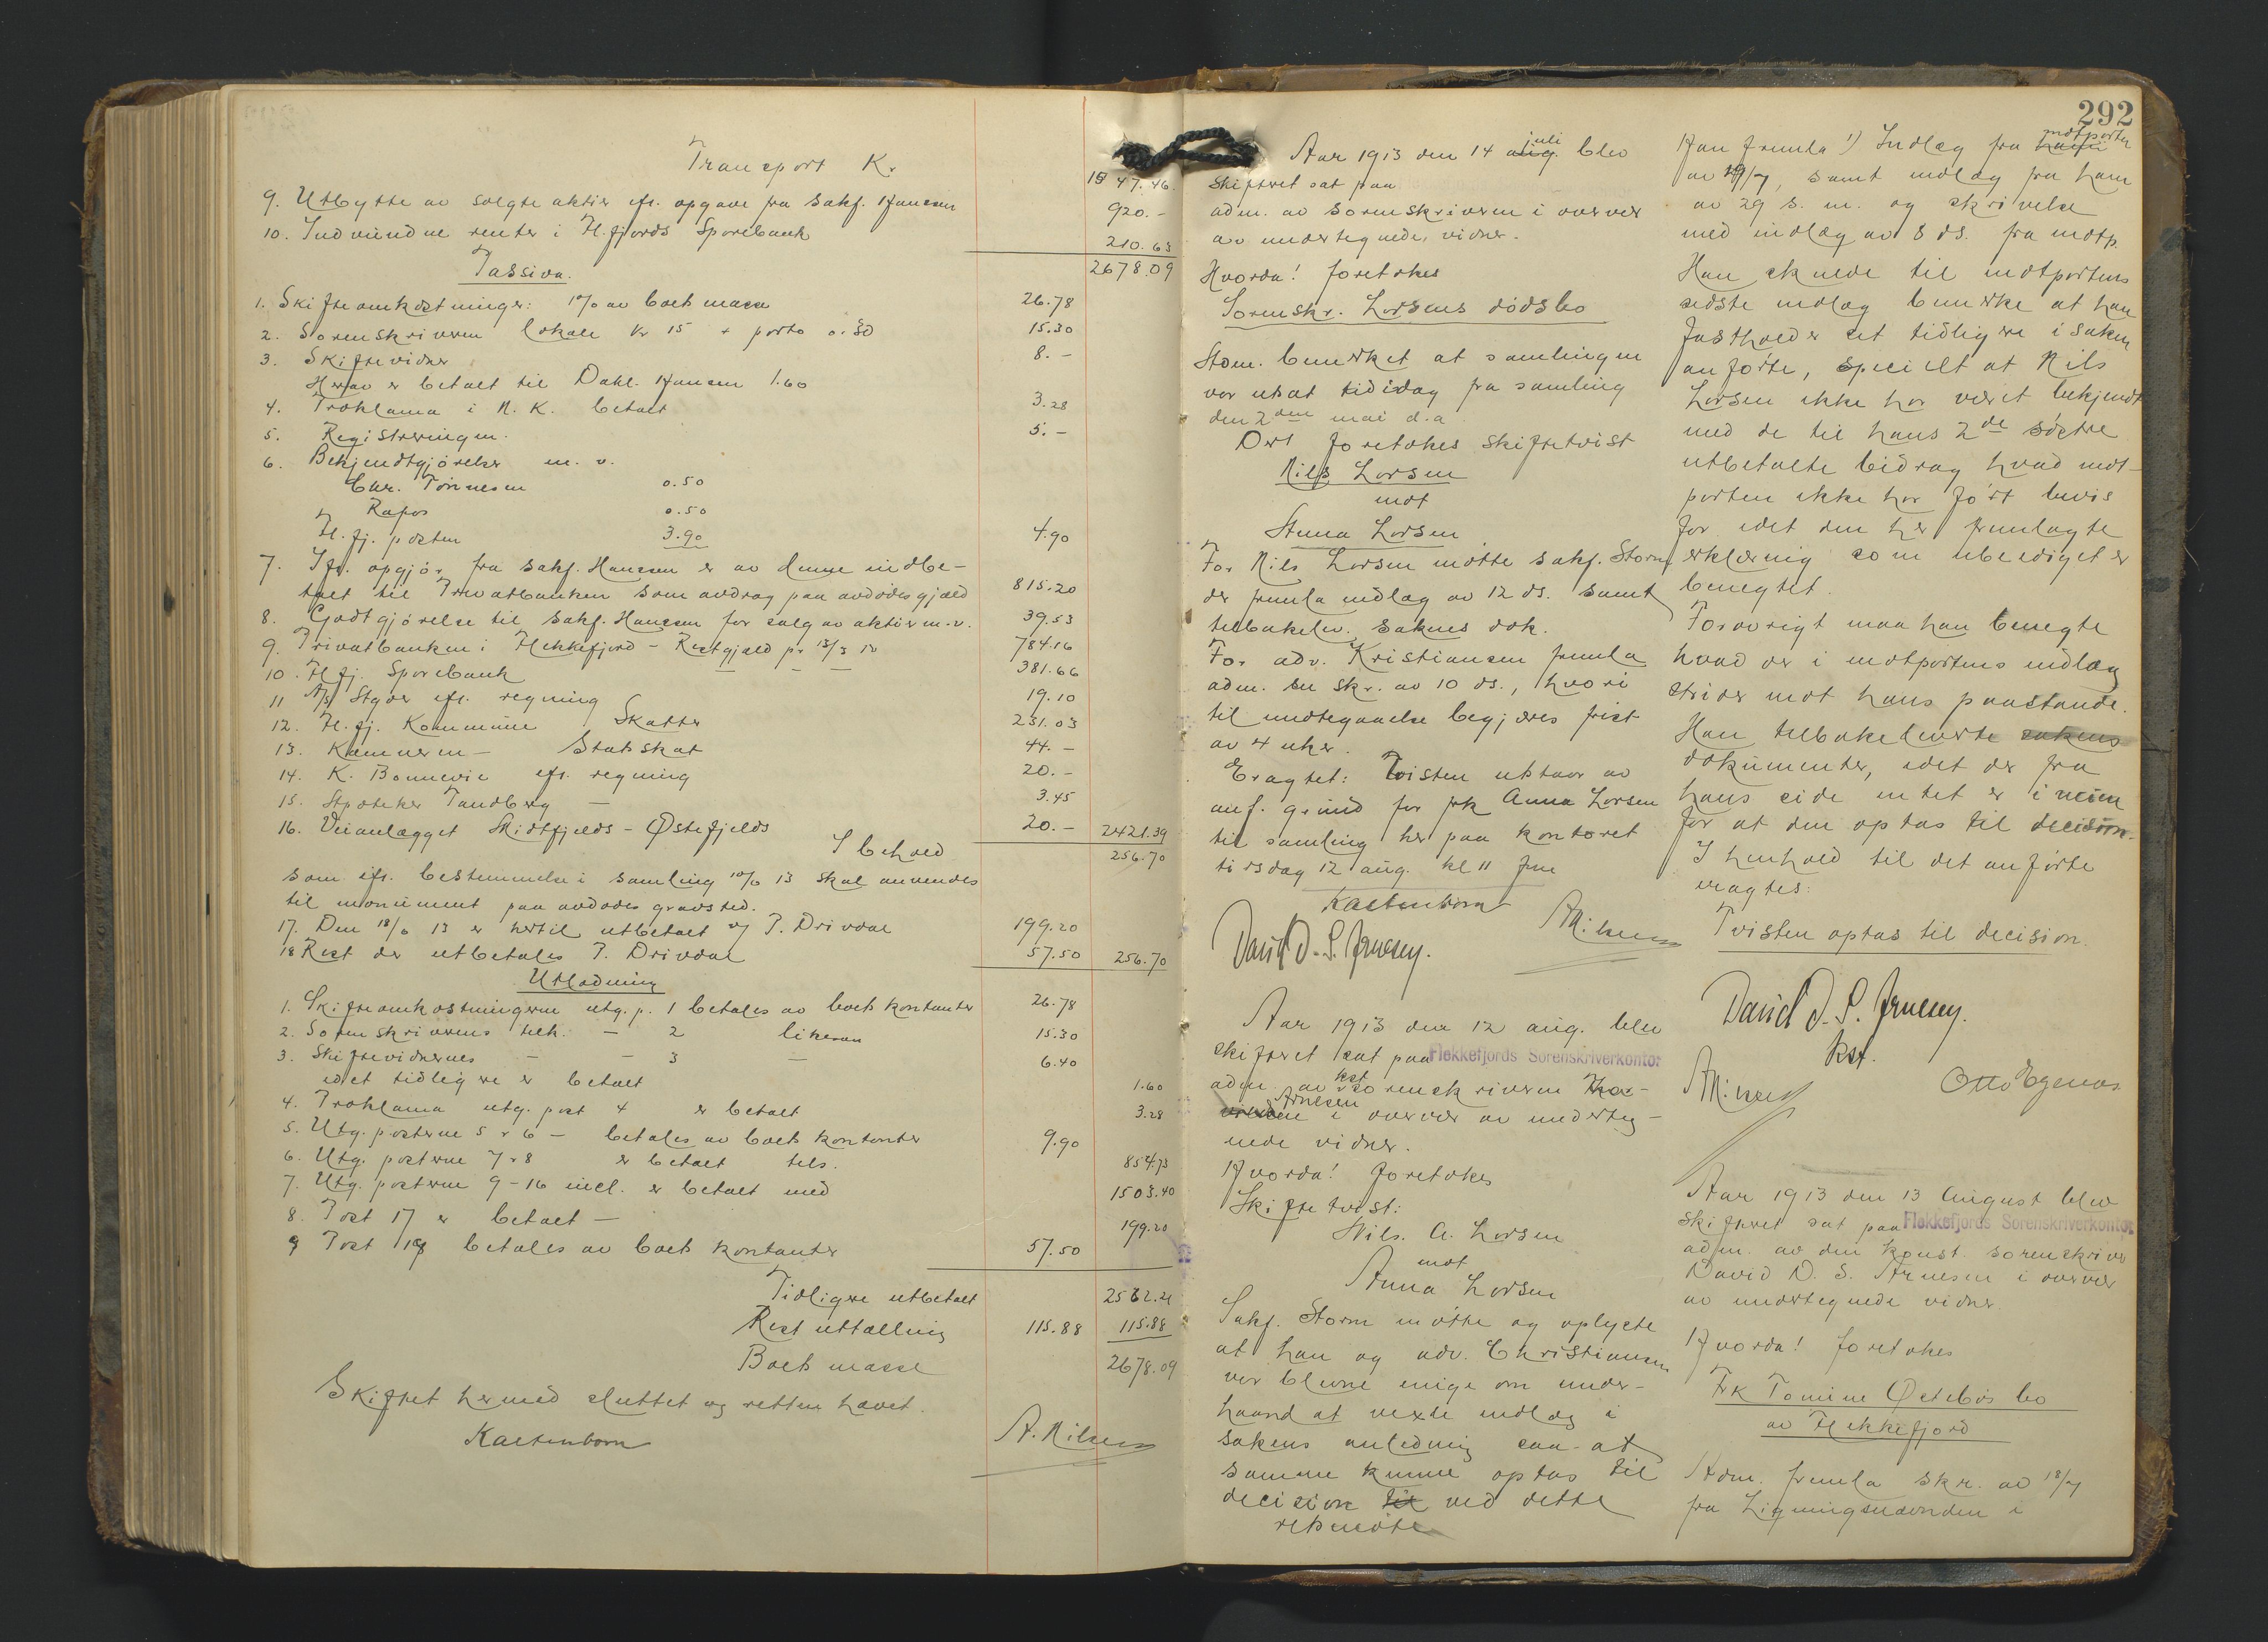 Transport Kr. 1547.46.
9. Utbytte av solgte aktier ifl. opgave fra sakf. Hanssen 920.-
10. Indvundne renter i Fl.fjords Sparebank 210.63
2678.09
Passiva.
1. Skifteomkostninger: 1% av boets masse 26.78
2. Sorenskriveren lokale kr 15 + porto 0.30 15.30
3. Skiftevidner 8.-
Herav er betalt til Dahl. Hansen 1.60
4. Proklama i N. K. betalt 3.28
5. Registreringen. 5.-
6. Bekjendtgjørelser m. v.
Chr. Tönnesen 0.50
Rafos 0.50
Fl. fj. posten 3.90 4.90
7. Ifl. opgjör fra sakf. Hanssen er av denne indbe-
talt til Privatbanken som avdrag paa avdödes gjæld 815.20
8. Godtgjörelse til sakf. Hanssen for salg av aktier m.v. 39.53
9. Privatbanken i Flekkefjord - Restgjæld pr 13/3 13 784.16
10. Fl.fj. Sparebank — — — 381.66
11 A/S Styr ifl. regning 19.10
12. Fl. fj. Kommune Skatter 231.03
13. Kæmneren - Statsskat 44.-
14. K. Bonnevie ifl. regning 20.-
15. Apoteker Tandberg — 3.45
16. Veianlægget Midtfjelds - Østefjelds 20.- 2421.39
I behold 256.70
som ifl. bestemmelse i samling 10/6 13 skal anvendes
til monument paa avdødes gravsted.
17. Den 18/6 13 er hertil utbetalt v/ P. Drivdal 199.20
18 Rest der utbetales P. Drivdal 57.50 256.70
Utlodning
1. Skifteomkostningerne utg. p. 1 betales av boets kontanter 26.78
2. Sorenskriverens tilk. — 2 likesaa 15.30
3. Skiftevidnernes — — 3 — 6.40
idet tidligere er betalt 1.60
4. Proklama utg. post 4 er betalt 3.28
5. Utg. posterne 5 + 6 — betales av boets kontanter 9.90
6. Utg. posterne 7 + 8 er betalt tils. 854.73
7. Utg. posterne 9 - 16 incl. er betalt med 1503.40
8. Post 17 er betalt — 199.20
9 Post 18 betales av boets kontanter 57.50
Tidligere utbetalt 2562.21
Rest uttælling 115.88 115.88
Boets masse 2678.09
Skiftet hermed sluttet og retten hævet.
Kaltenborn A. Nilsen
292
Aar 1913 den 14 aug. juli blev
skifteret sat paa
adm. av sorenskriveren i overvær
av undertegnede vidner.
Hvorda! foretokes
Sorenskr. Larsens dødsbo
Adm. bemerket at samlingen
var utsat til idag fra samling
den 2den mai d.a
Der foretokes skiftetvist
Nils Larsen
mot
Anna Larsen
For Nils Larsen mötte sakf. Storm
der fremla indlæg av 12 ds. samt
tilbakelev. sakens dok.
For adv. Kristiansen fremla
adm. en skr. av 10 ds., hvori
til imøtegaaelse begjæres frist
av 4 uker.
Eragtet: Tvisten utstaar av
anf. grund for frk Anna Larsen
til samling her paa kontoret
tirsdag 12 aug. kl 11 fm
Kaltenborn
David D. S. Arnesen. A Nilsen
Aar 1913 den 12 aug. blev
skifteret sat paa Flekkefjords Sorenskriverkontor
adm. av kst sorenskriveren
Arnesen i overvær av underteg-
nede vidner.
Hvorda! foretokes
Skiftetvist:
Nils. A. Larsen
mot
Anna Larsen
Sakf. Storm mötte og oplyste
at han og adv. Christiansen
var blevne enige om under-
haand at vexle indlæg i
sakens anledning saa at
samme kunne optas til
decision til ved dette
retsmöte
Han fremla 1) Indlæg fra ham motparten
av 29/7, samt indlæg fra ham
av 29 s. m. og skrivelse
med indlæg av 8 ds. fra motp.
Han skulde til motpartens
sidste indlæg bemerke at han
fastholder det tidligere i saken
anförte, specielt at Nils
Larsen ikke har været bekjendt
med de til hans 2de söstre
utbetalte bidrag hvad mot-
parten ikke har fört bevis
for idet den her fremlagte
erklæring som ubeediget er
benegtet.
Forövrigt maa han benegte
hvad der i motpartens indlæg
strider mot hans paastande.
Han tilbakeleverte sakens
dokumenter, idet der fra
hans side intet er i veien
for at den optas til decision.
I henhold til det anförte
eragtes:
Tvisten optas til decision.
David D. S. Arnesen.
kst.
A Nilsen Otto Egenes
Aar 1913 den 13 August blev
skifteret sat paa Flekkefjords Sorenskriverkontor
adm. av den konst. sorenskriver
David D. S. Arnesen i overvær
av undertegnede vidner.
Hvorda! foretokes
Frk Tomine Østebös bo
av Flekkefjord
Adm. fremla skr. av 18/7
fra Ligningsnævnden i